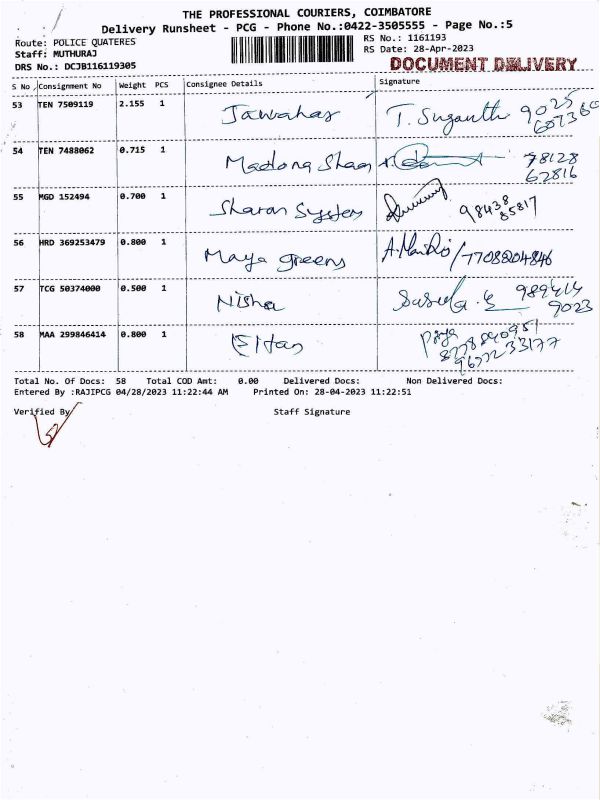 THE PROFESSIONAL COURIERS, COIMBATORE
Delivery Runsheet - PCG - Phone No.:0422-3505555 - Page No.:5
Route: POLICE QUATERES
RS No.: 1161193
Staff: MUTHURAJ
RS Date: 28-Apr-2023
DRS No.: DCJB116119305
DOCUMENT DELIVERY
S No Consignment No Weight PCS Consignee Details Signature
53 TEN 7509119 2.155 1 Jawahar T. Suganthi 9025
607360
54 TEN 7488062 0.715 1 Madona Shaan 78128
62816
55 MGD 152494 0.700 1 Sharan System 98438
85817
56 HRD 369253479 0.800 1 Maya greens /7708204846
57 TCG 50374000 0.500 1 Nisha Susila 989414
9023
58 MAA 299846414 0.800 1 Priya
Total No. Of Docs: 58 Total COD Amt: 0.00 Delivered Docs: Non Delivered Docs:
Entered By :RAJIPCG 04/28/2023 11:22:44 AM Printed On: 28-04-2023 11:22:51
Verified By Staff Signature